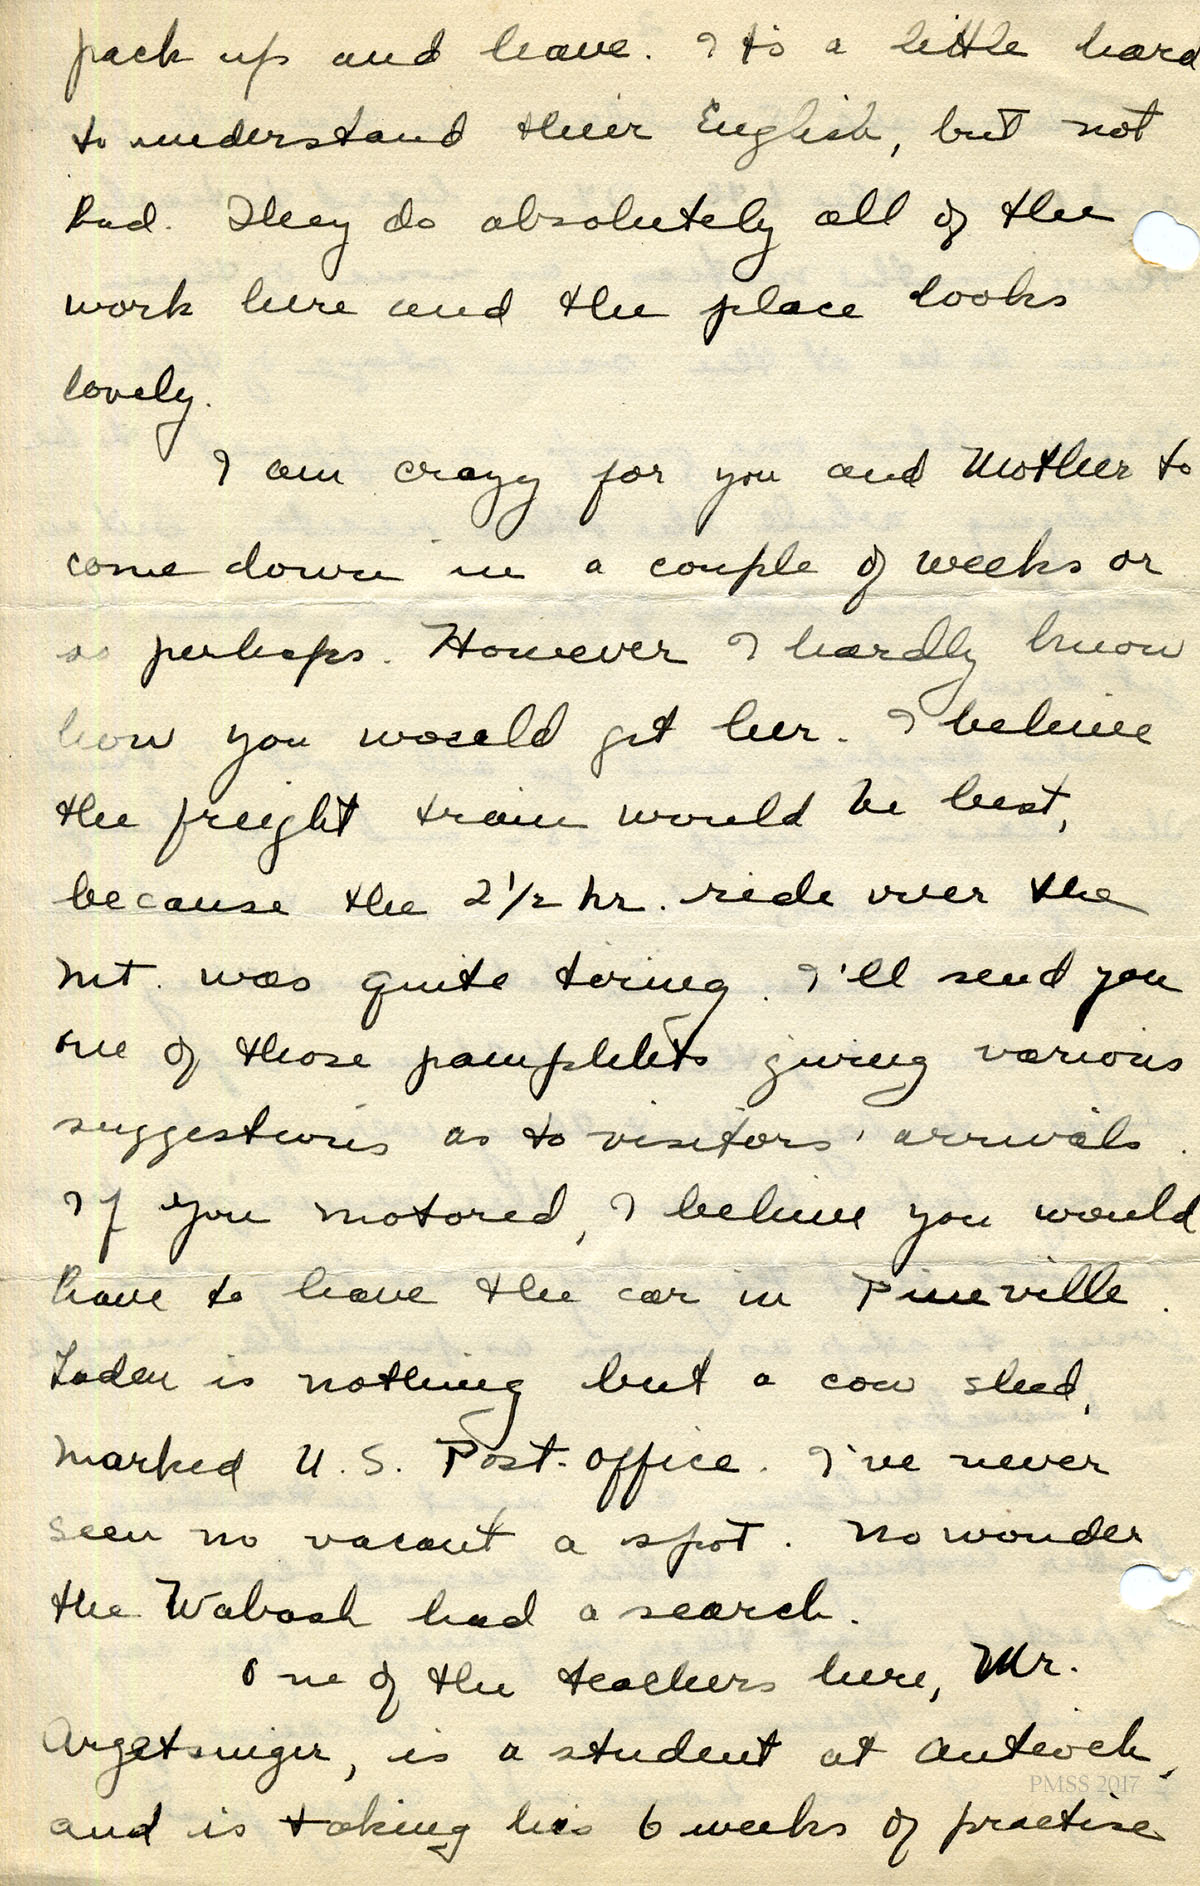 pack up and leave. It's a little hard
to understand their English, but not
bad. They do absolutely all of the
work here and the place looks
lovely.
I am crazy for you and Mother to
come down in a couple of weeks or
so perhaps. However I hardly know
how you would get her. I believe
the freight train would be best,
because the 2 1/2 hr. ride over the
mt. was quite tiring. I'll send you
one of those pamphlets giving various
suggestions as to visitors' arrivals.
If you motored, I believe you would
have to leave the car in Pineville.
Laden is nothing but a cow shed,
marked U.S. Post-office. I've never
seen no vacant a spot. No wonder
the Wabash had a search.
One of the teachers here, Mr.
Argetsinger, is a student at Antioch,
and is taking his 6 weeks of practise
PMSS 2017